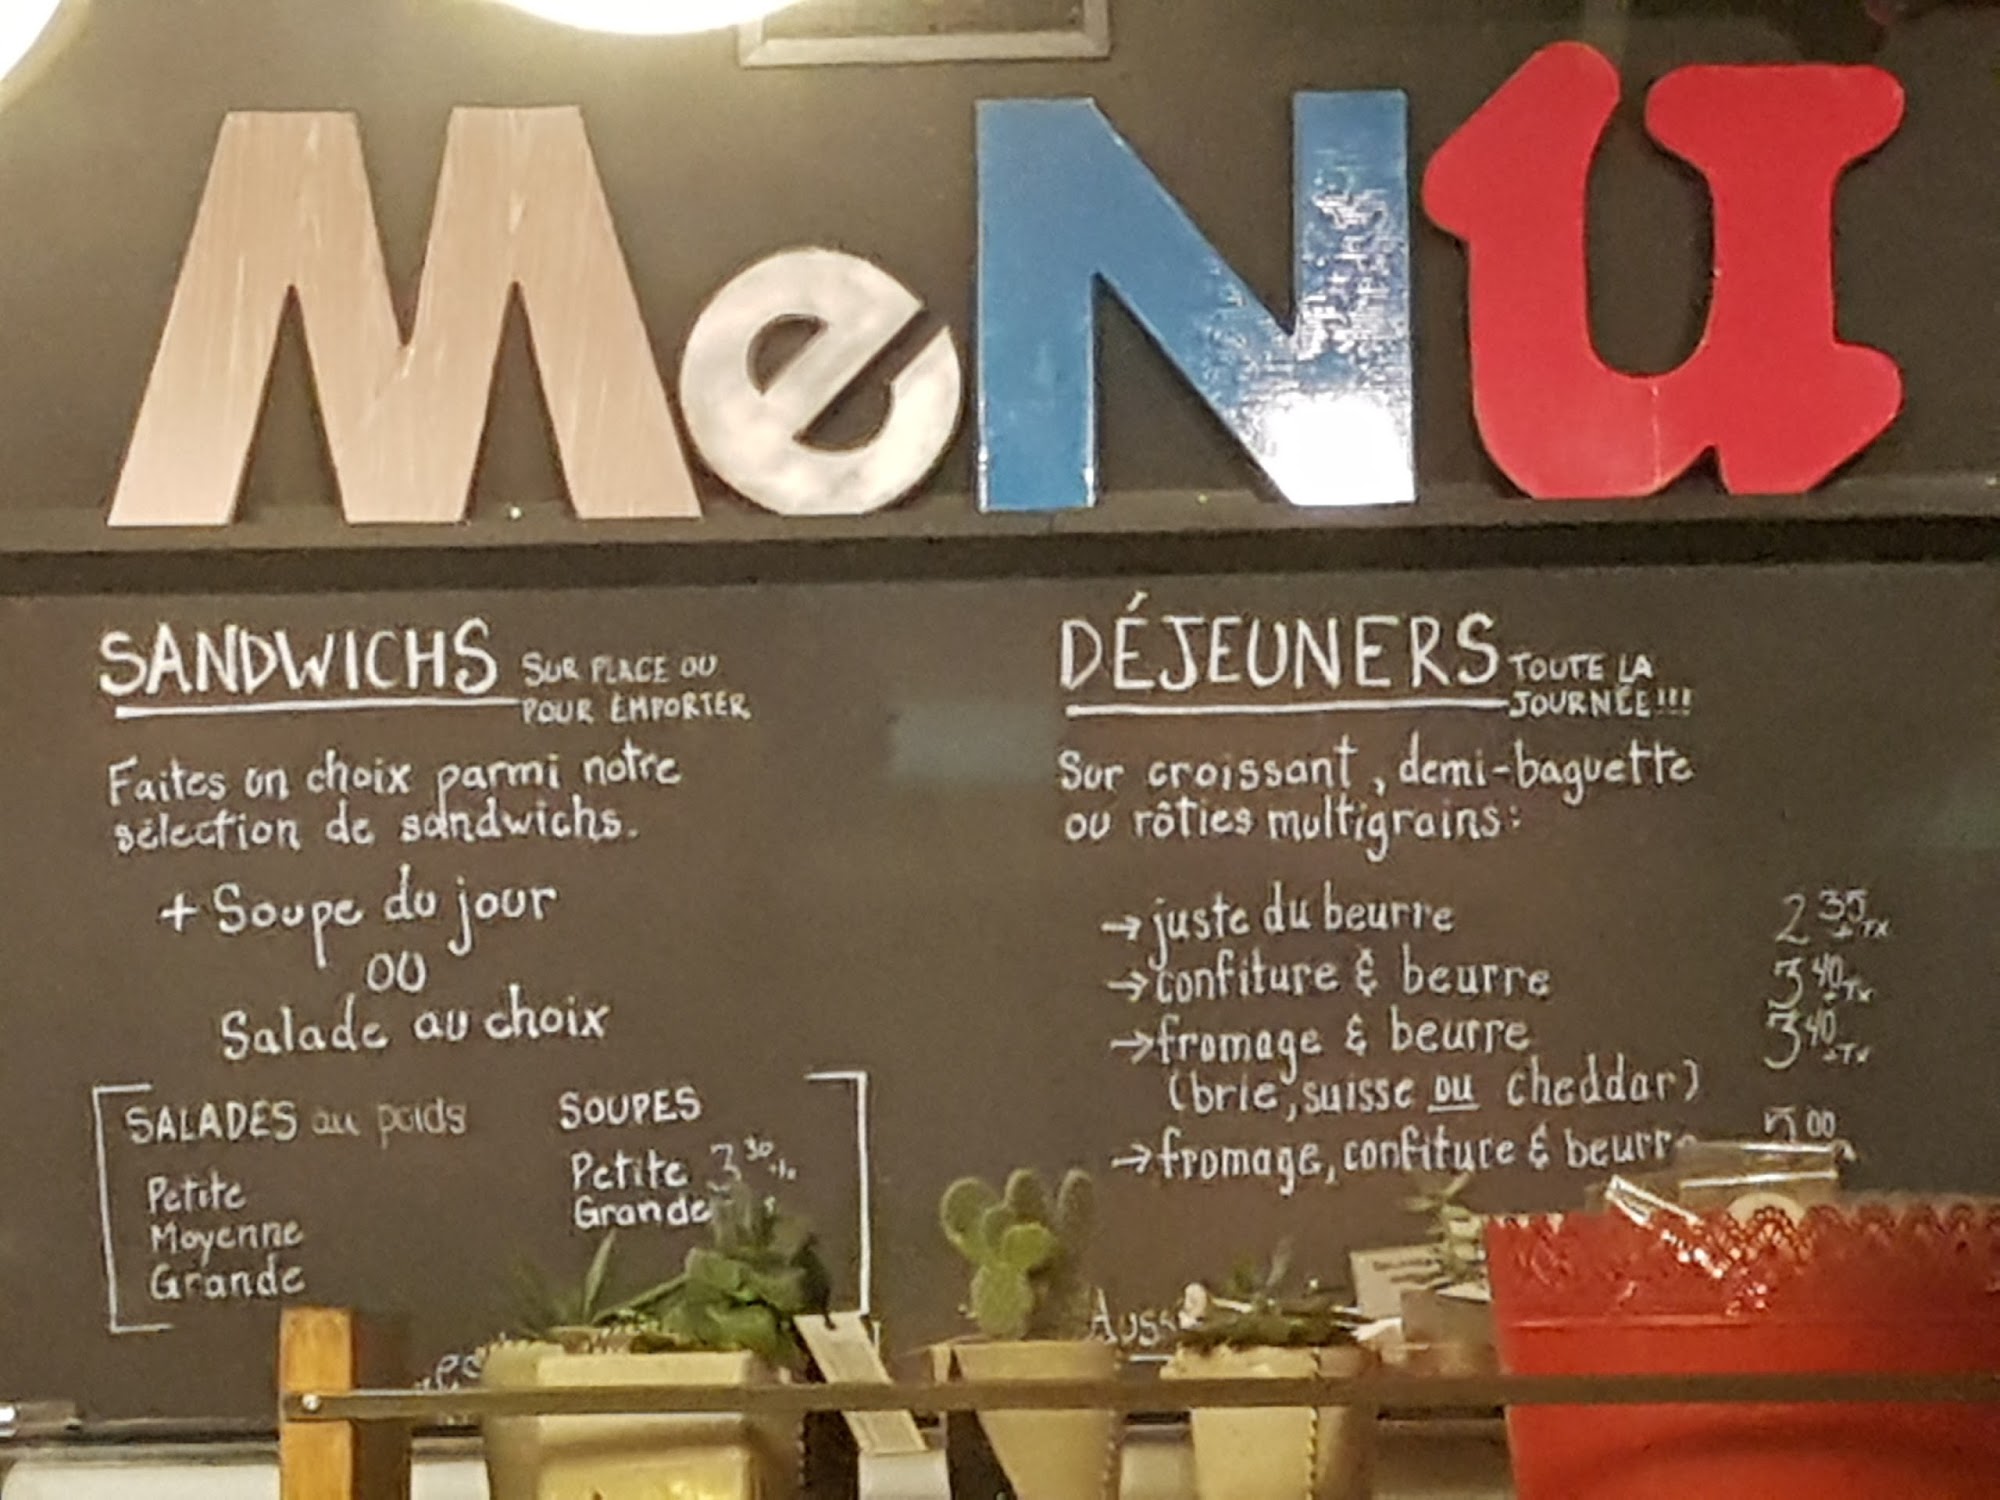 MeNU
SANDWICHS SUR PLACE OU
POUR EMPORTER
Faites un choix parmi notre
sélection de sandwichs.
+ Soupe du jour
OU
Salade au choix
SALADES au poids
Petite
Moyenne
Grande
SOUPES
Petite 3 30
Grande
DÉJEUNERS TOUTE LA
JOURNÉE!!!
Sur croissant, demi-baguette
ou rôties multigrains:
→ juste du beurre 2 35 +TX
→ confiture & beurre 3 40 +TX
→ fromage & beurre 3 40 +TX
(brie, suisse ou cheddar)
→ fromage, confiture & beurre 5 00